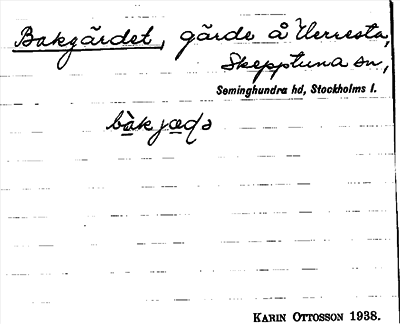 Bakgärdet, gärde å Verresta,
Skepptuna sn,
Seminghundra hd, Stockholms l.
bàkjæḍə
KARIN OTTOSSON 1938.